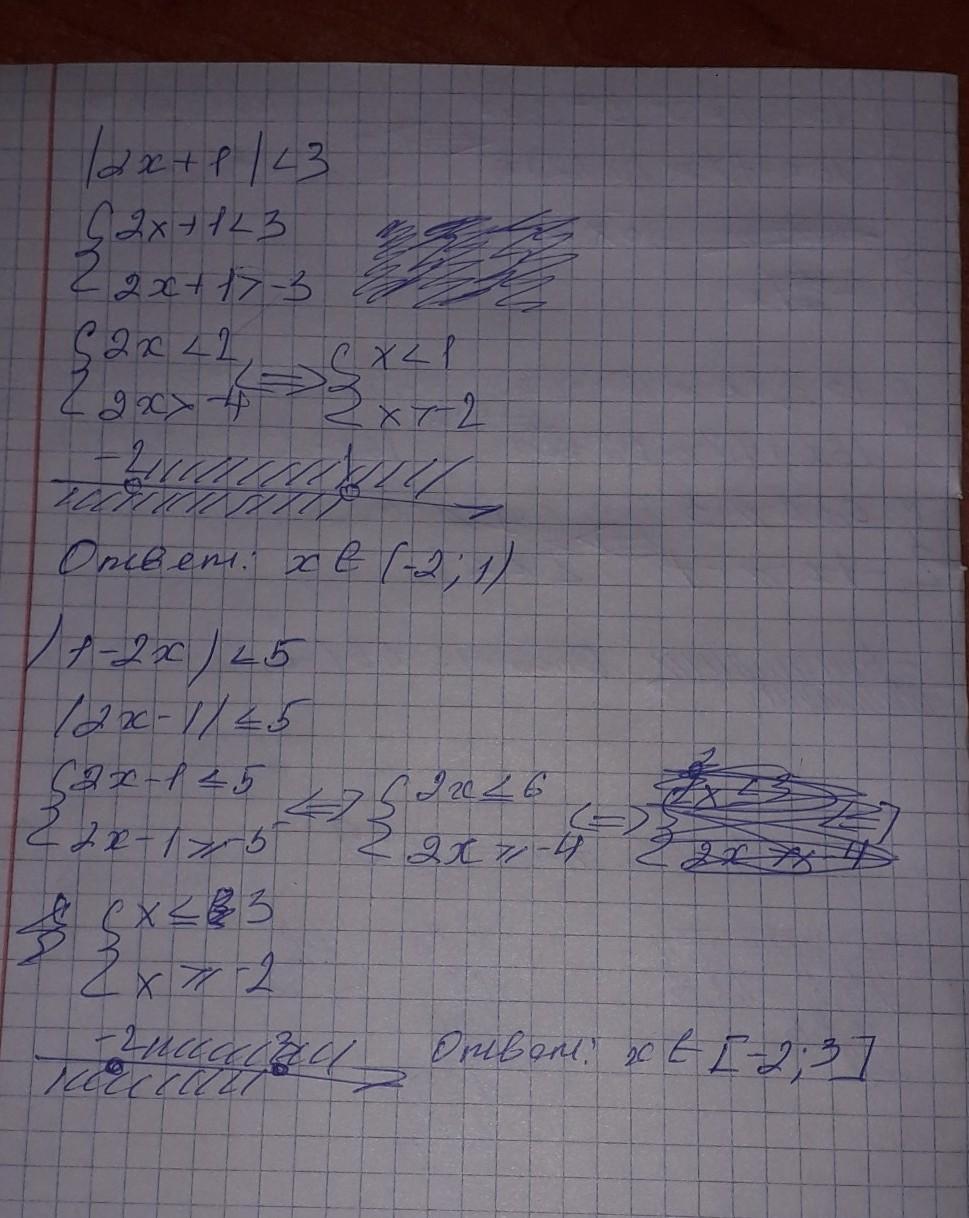 |2x+1|<3
{2x+1<3
{2x+1>-3
{2x<2 <=> {x<1
{2x>-4 {x>-2
-2 1
Ответ: x∈(-2;1)
|1-2x|<5
|2x-1|≤5
{2x-1≤5 <=> {2x≤6 <=>
{2x-1≥-5 {2x≥-4
{x≤3
{x≥-2
-2 3 Ответ: x∈[-2;3]